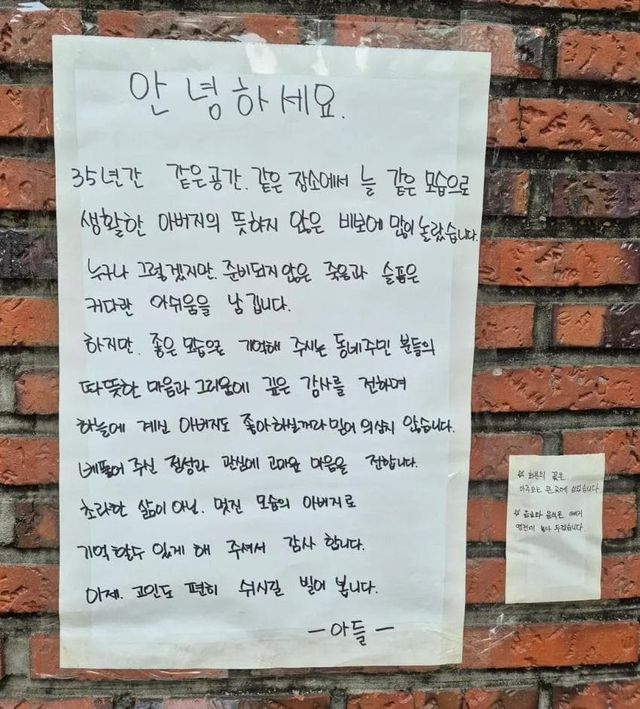 안녕하세요.
35년간 같은공간. 같은 장소에서 늘 같은 모습으로
생활한 아버지의 뜻하지 않은 비보에 많이 놀랐습니다.
누구나 그렇겠지만. 준비되지 않은 죽음과 슬픔은
커다란 아쉬움을 남깁니다.
하지만. 좋은 모습으로 기억해 주시는 동네주민 분들의
따뜻한 마음과 그리움에 깊은 감사를 전하며
하늘에 계신 아버지도 좋아하실꺼라 믿어 의심치 않습니다.
베풀어 주신 정성과 관심에 고마운 마음을 전합니다.
초라한 삶이 아닌. 멋진 모습의 아버지로
기억할수 있게 해 주셔서 감사 합니다.
이제. 고인도 편히 쉬시길 빌어 봅니다.
-아들-
☆ 화분의 꽃은
심었습니다
☆ 음료와 음식은 아버지
영전에 놓아 두겠습니다.